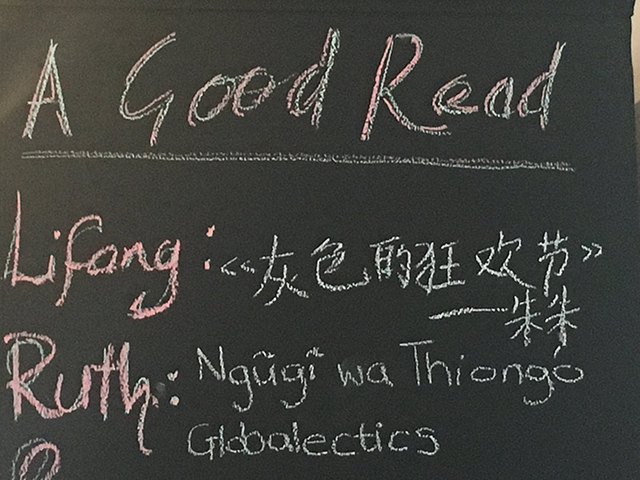 A Good Read
Lifang: 《灰色的狂欢节》
——朱朱
Ruth: Ngũgĩ wa Thiongó
Globalectics